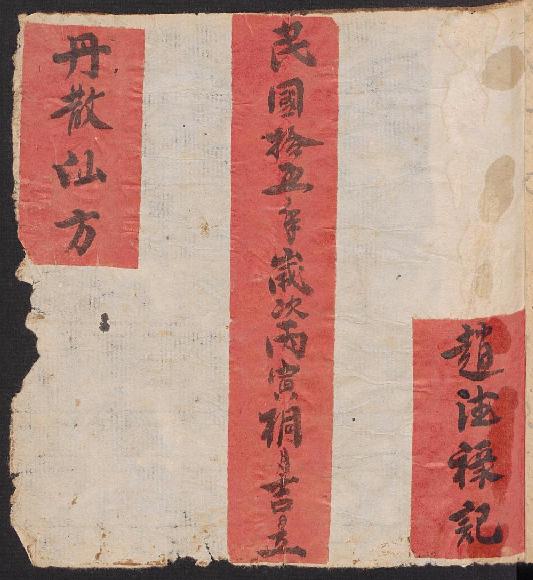 趙法祿記
民國拾五年歲次丙寅桐月吉立
丹散仙方